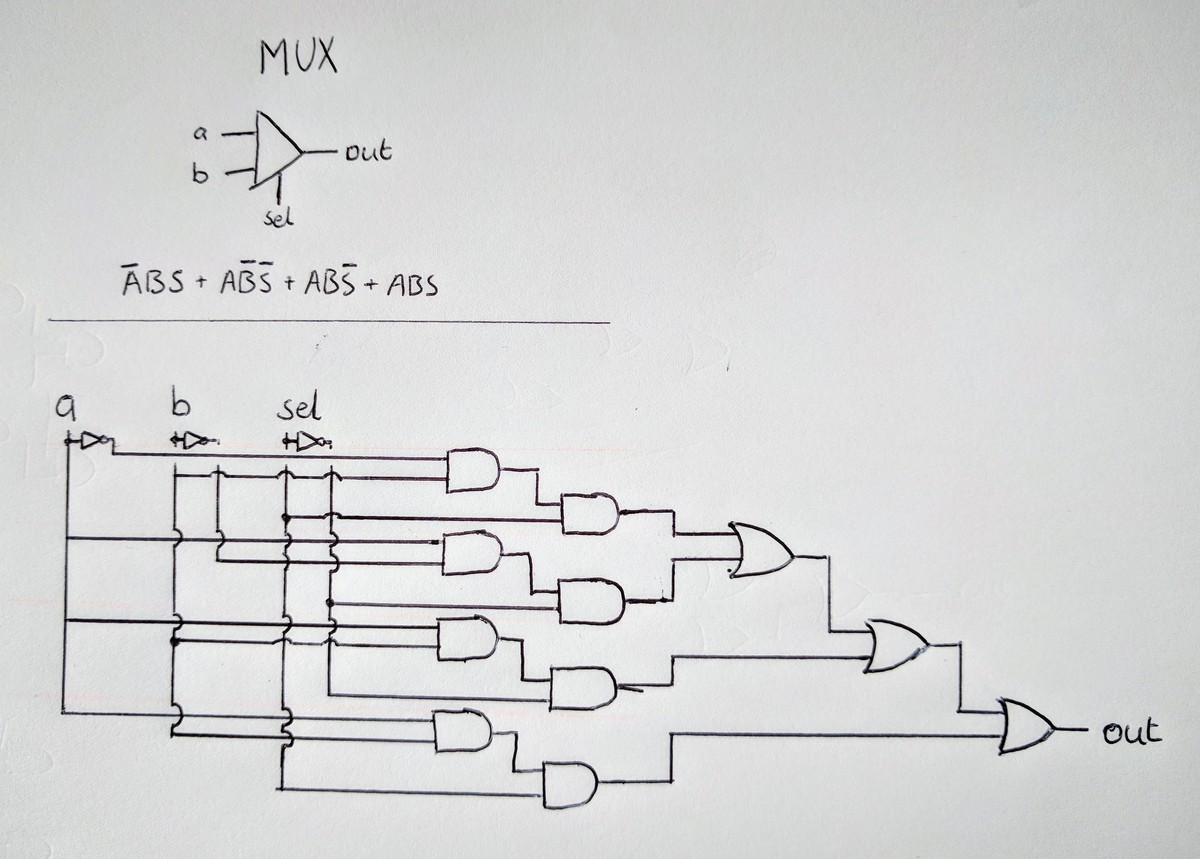 MUX
a
b
out
sel
A̅BS + AB̅S̅ + ABS̅ + ABS
a b sel
out